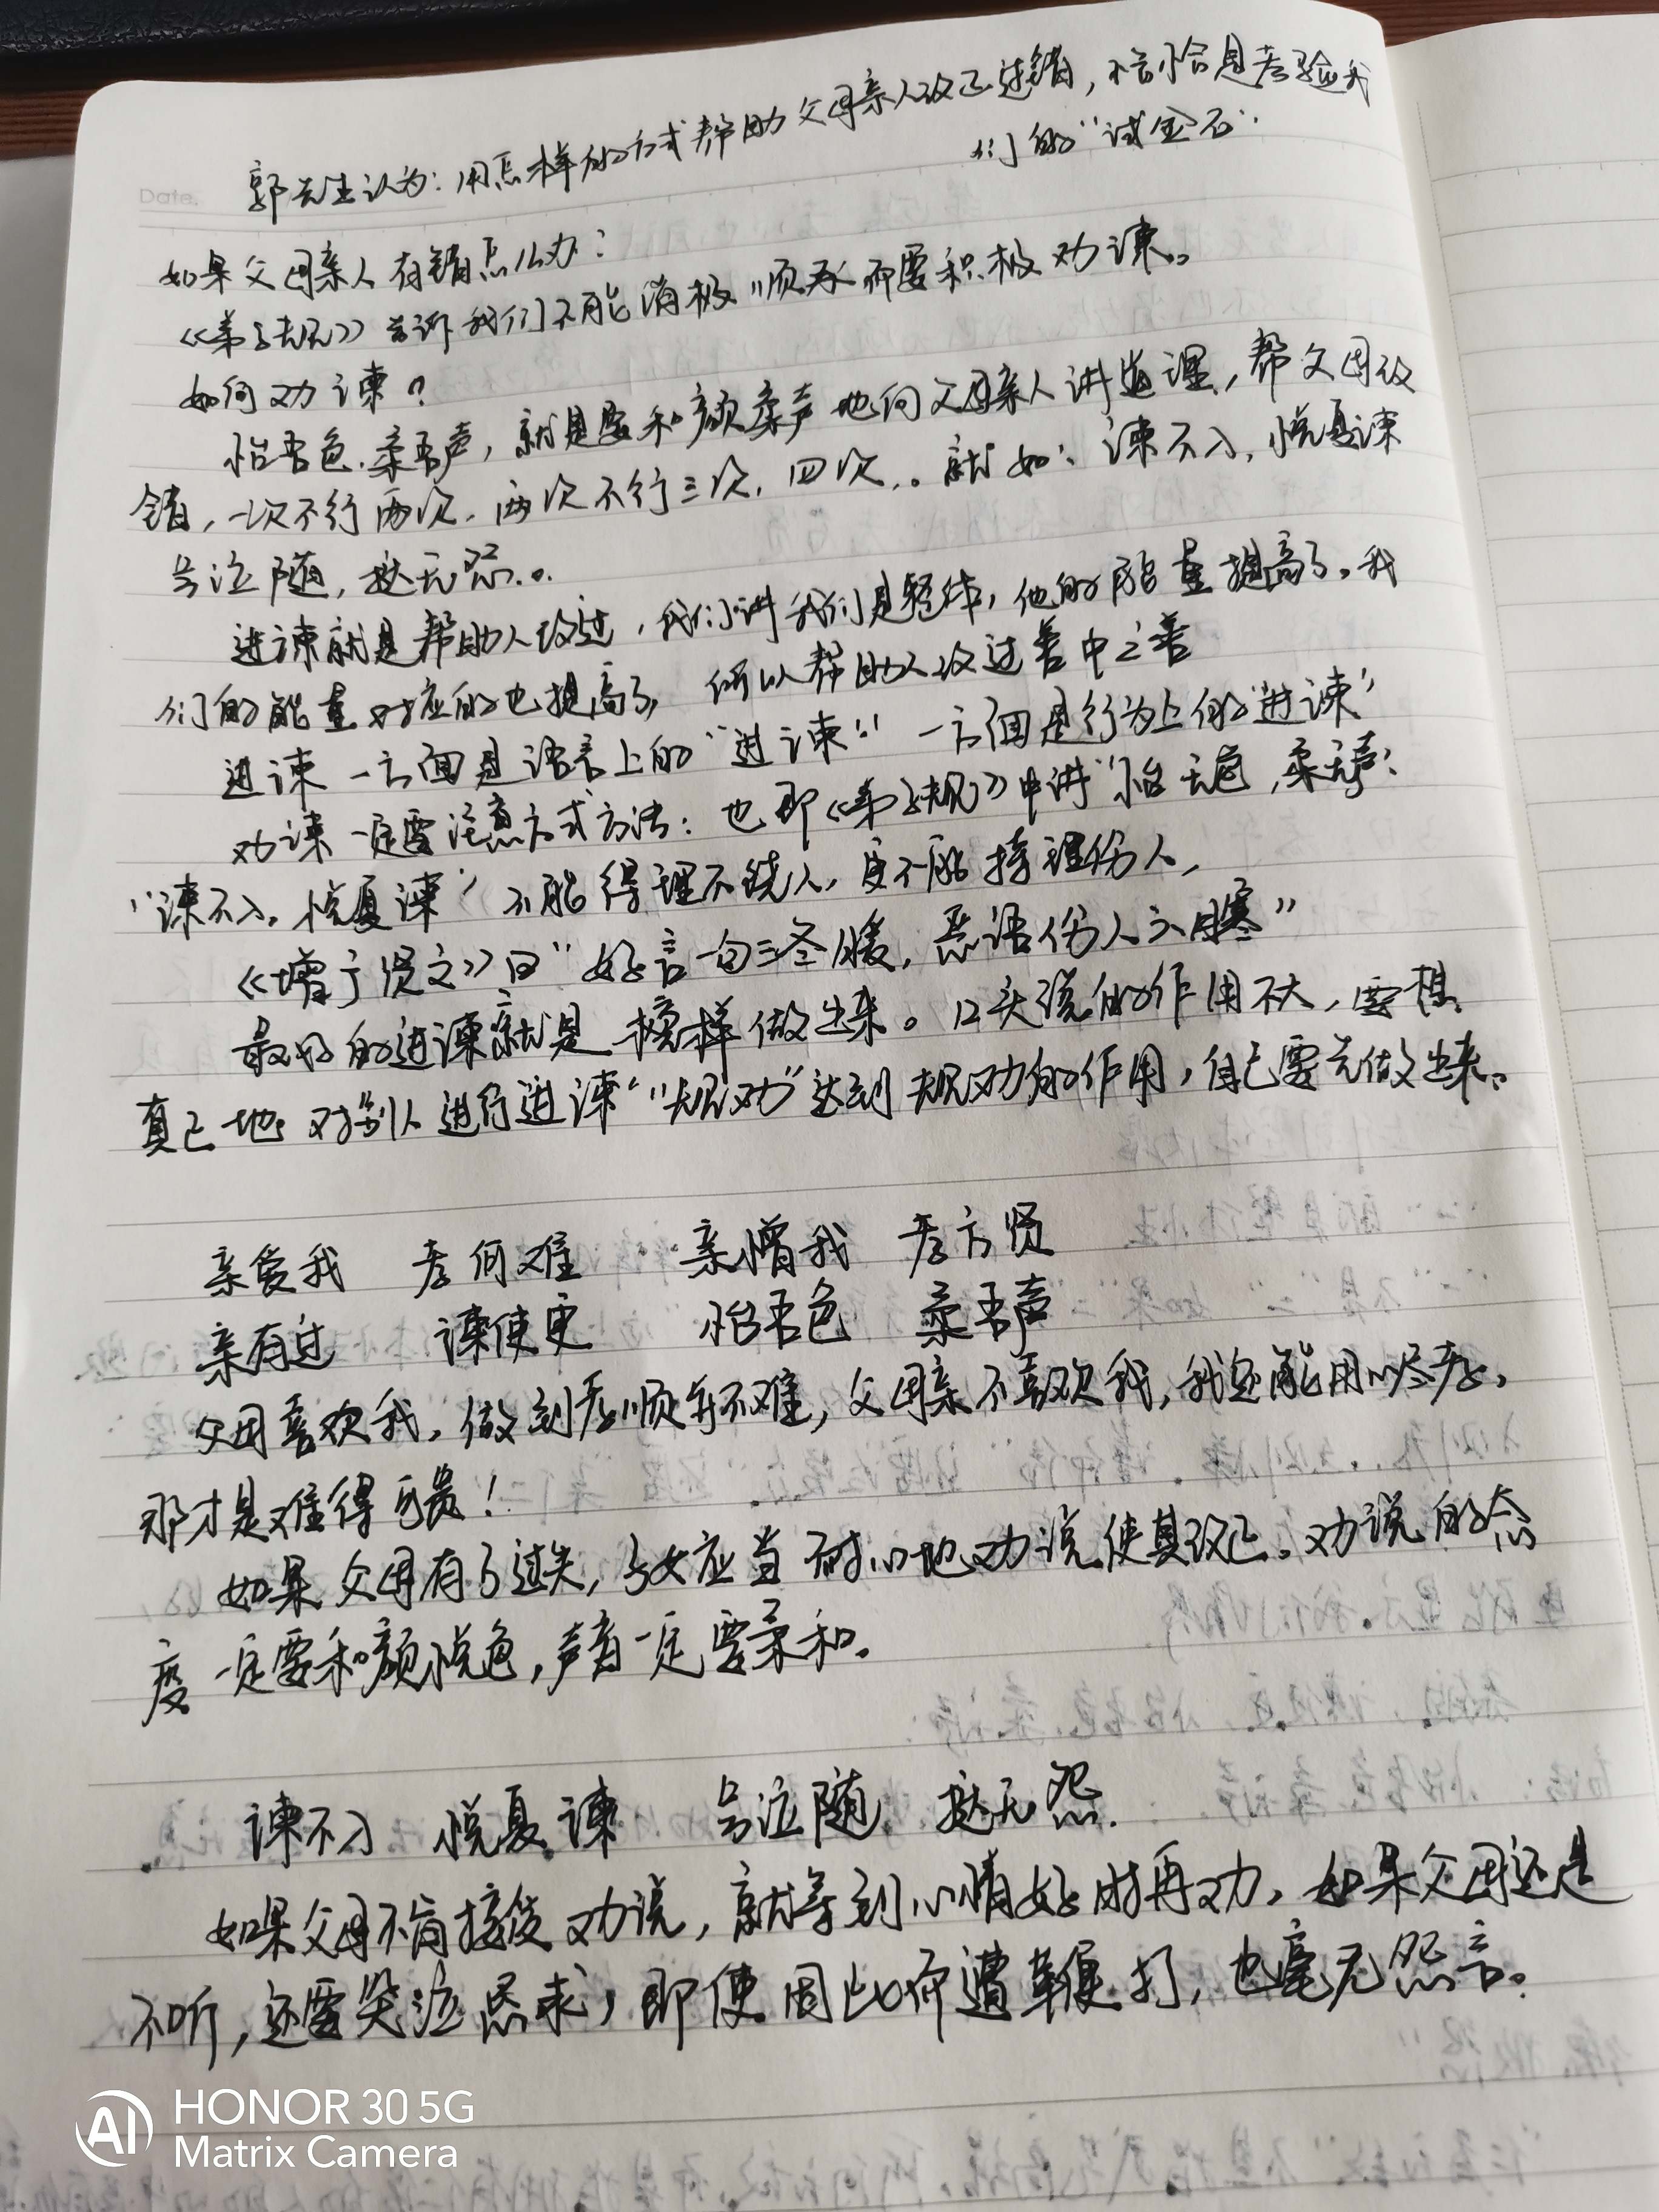 郭先生认为：用怎样的方式帮助父母亲人改正过错，恰恰是考验我
们的"试金石".
Date.
如果父母亲人有错怎么办？
《弟子规》告诉我们不能消极顺承而要积极劝谏。
如何劝谏？
怡吾色.柔吾声，就是要和颜柔声地向父母亲人讲道理，帮父母改
错，一次不行两次，两次不行三次，四次..。就如：谏不入，悦复谏
号泣随，挞无怨..
进谏就是帮助人改过，我们讲我们是整体，他的能量提高了，我
们的能量对应的也提高了，所以帮助人改过善中之善
进谏一方面是语言上的"进谏" 一方面是行为上的"进谏"
劝谏一定要注意方式方法：也即《弟子规》中讲"怡无色，柔无声：
"谏不入，悦复谏" 不能得理不饶人，更不能持理伤人，
《增广贤文》曰"好言一句三冬暖，恶语伤人六月寒"
最好的进谏就是榜样做出来。口头说的作用不大，要想
真正地对别人进行进谏"规劝"达到规劝的作用，自己要先做出来。
亲爱我 孝何难 亲憎我 孝方贤
亲有过 谏使更 怡吾色 柔吾声
父母喜欢我，做到孝顺并不难，父母亲不喜欢我，我还能用心尽孝，
那才是难得可贵！
如果父母有了过失，子女应当耐心地劝说使其改正。劝说的态
度一定要和颜悦色，声音一定要柔和。
谏不入 悦复谏 号泣随 挞无怨.
如果父母不肯接受劝说，就等到心情好时再劝，如果父母还是
不听，还要哭泣恳求，即使因此而遭鞭打，也毫无怨言。
AI HONOR 30 5G
Matrix Camera